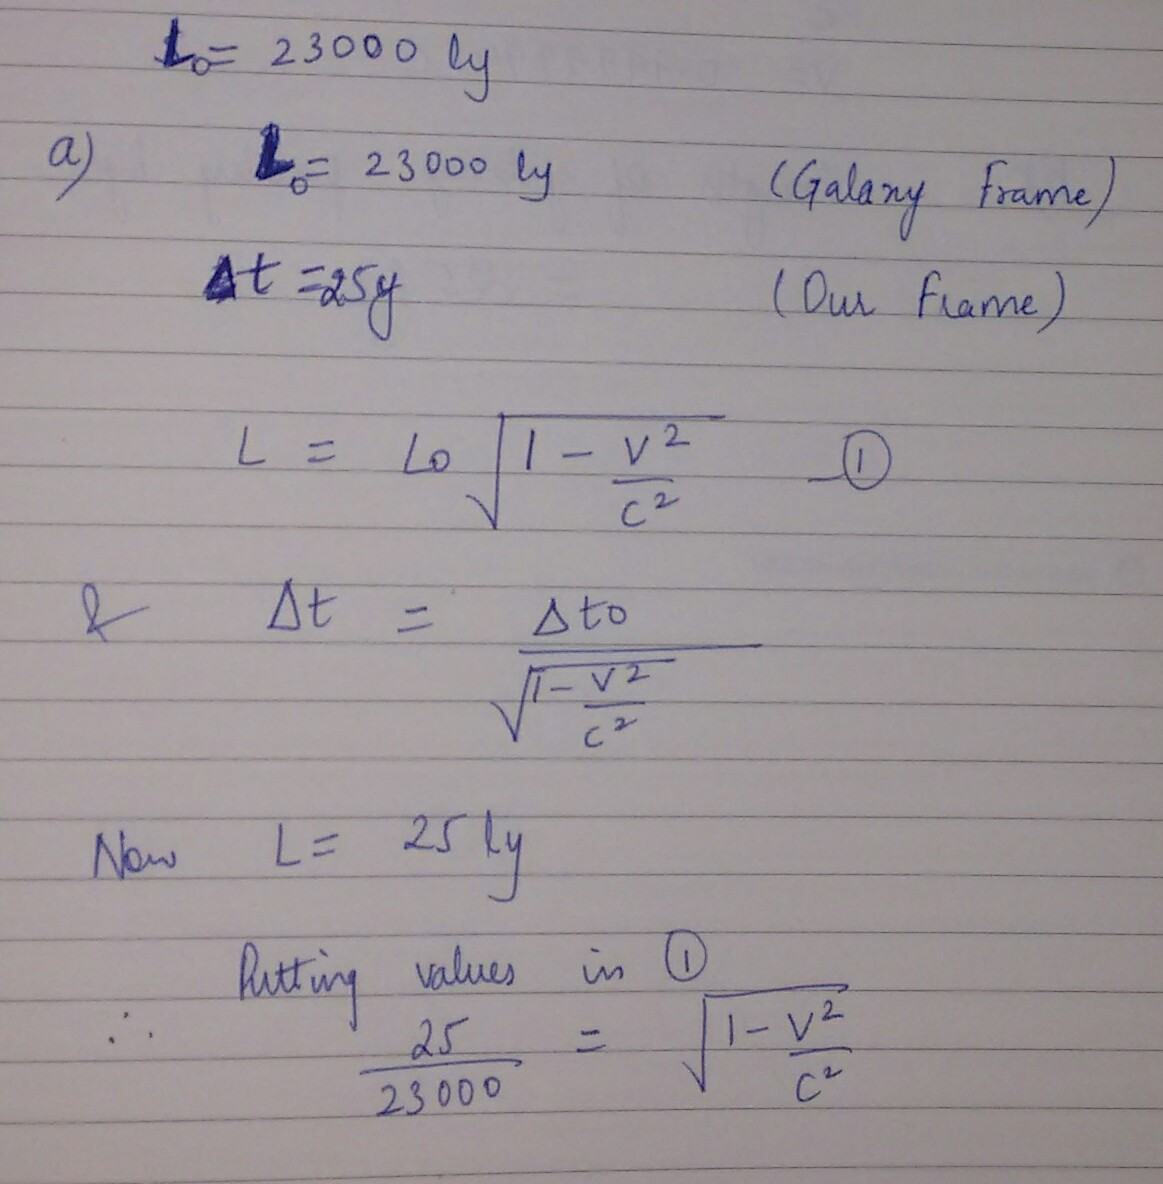 L₀ = 23000 ly
a) L₀ = 23000 ly (Galaxy Frame)
Δt = 25y (Our Frame)
L = L₀ √(1 - v²/c²) — ①
& Δt = Δt₀ / √(1 - v²/c²)
Now L = 25 ly
Putting values in ①
∴ 25/23000 = √(1 - v²/c²)